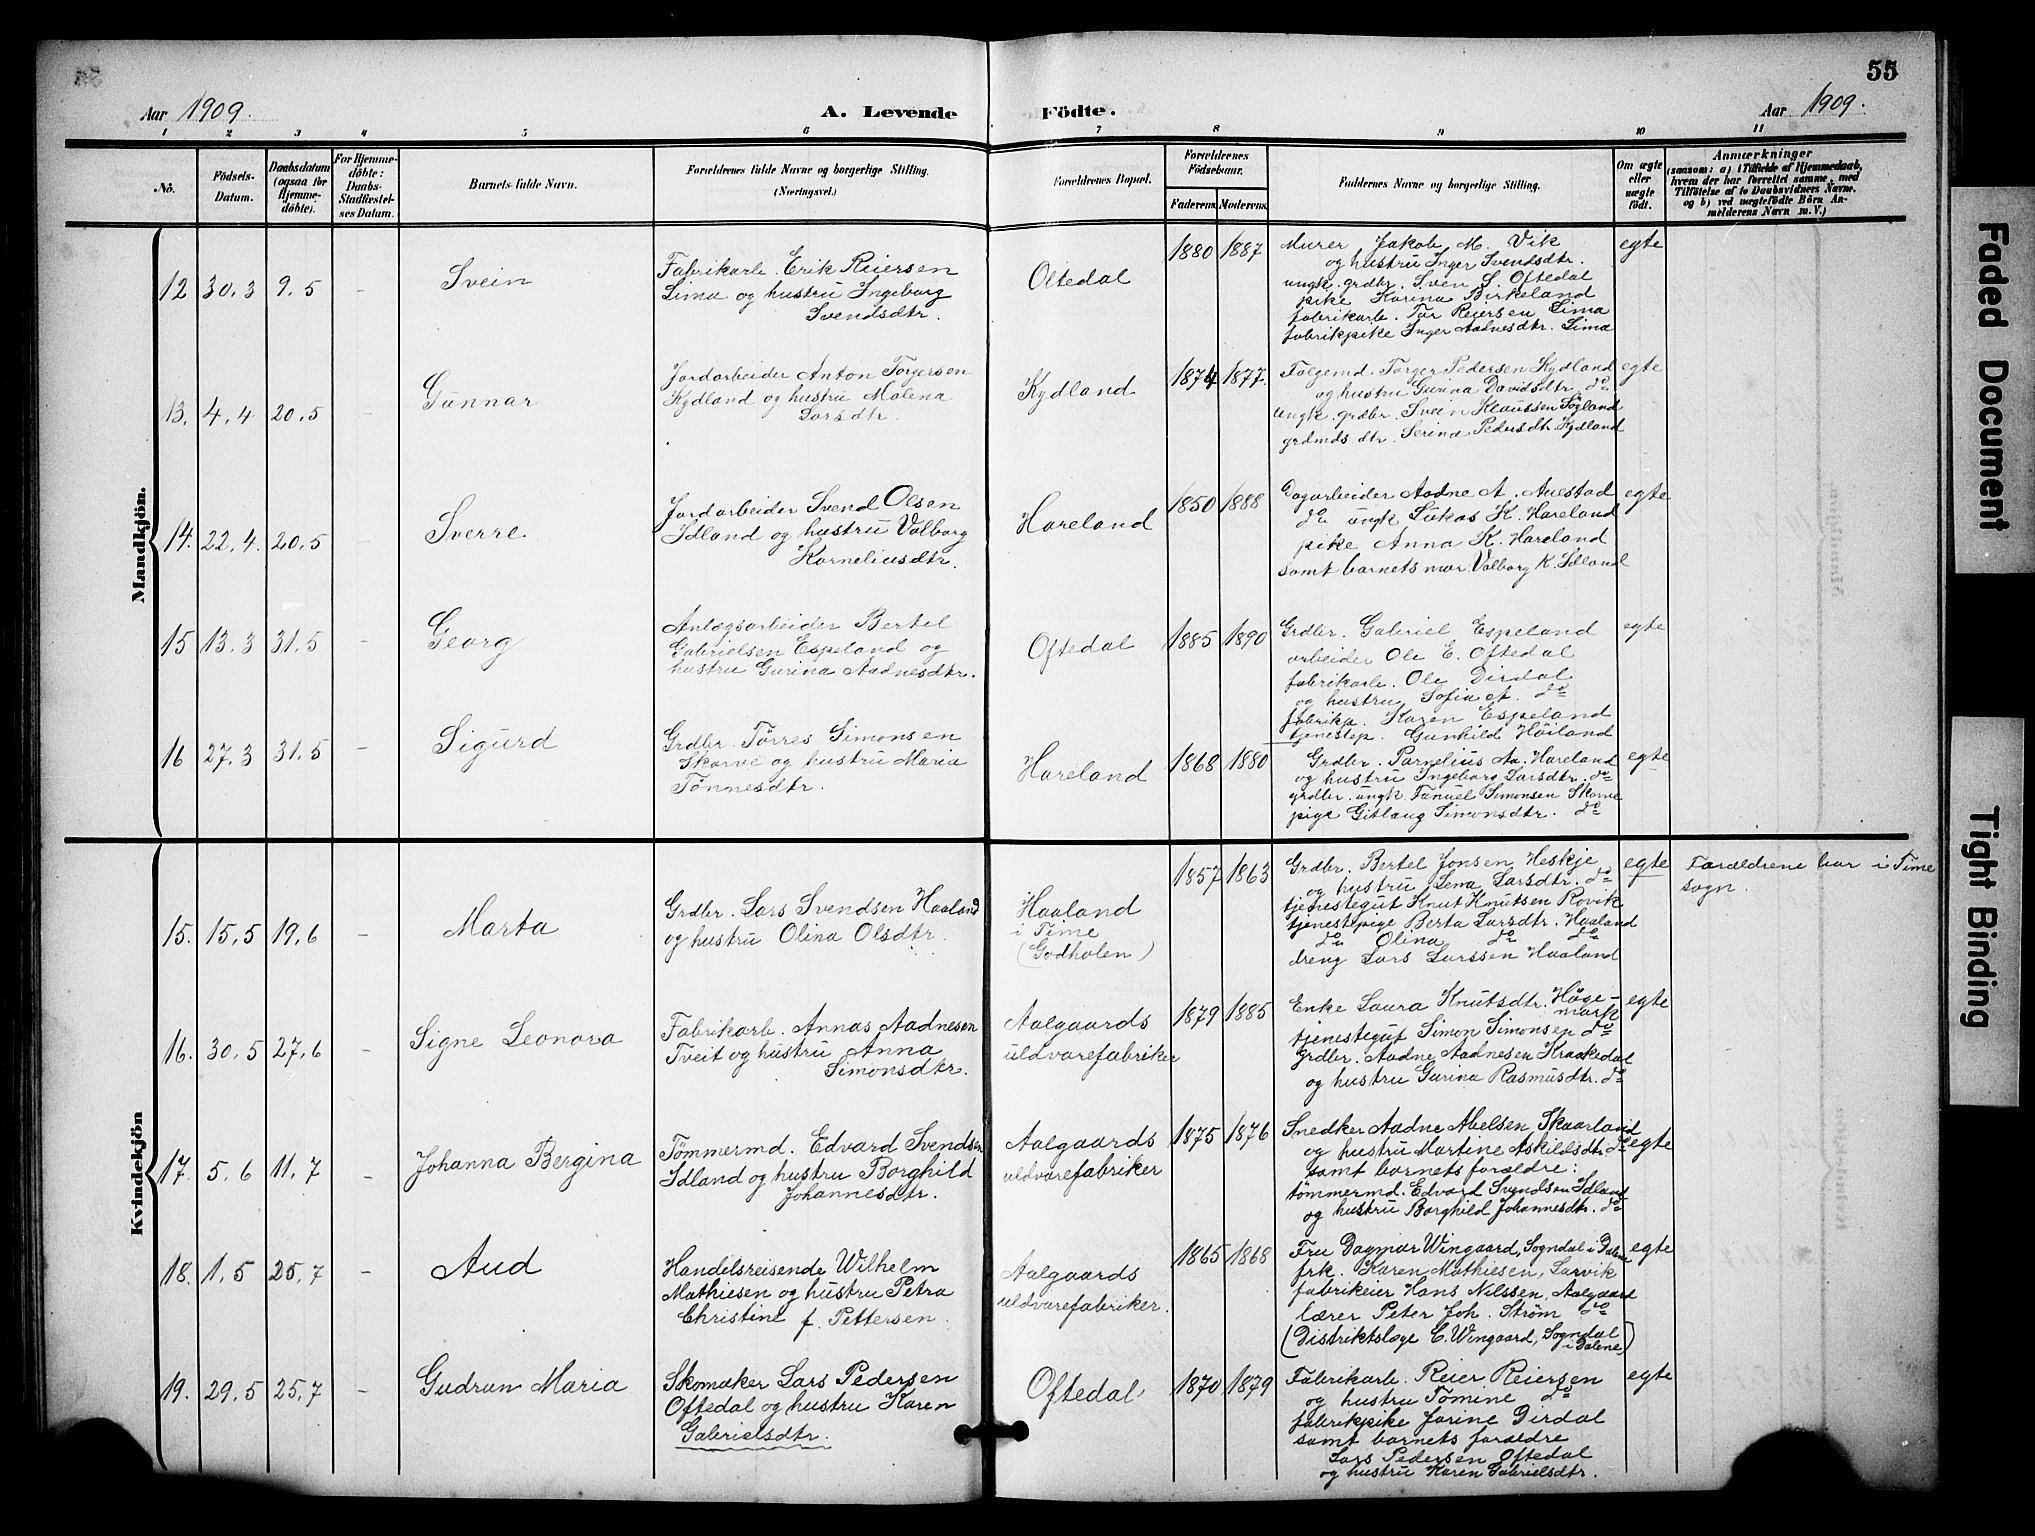 55
Aar 1909.
A. Levende Födte.
Aar 1909.
1 2 3 4 5 6 7 8 9 10 11
No.
Födsels-Datum.
Daabsdatum (ogsaa for Hjemmedöbte).
For Hjemmedöbte: Daabs-Stadfæstelses Datum.
Barnets fulde Navn.
Forældrenes fulde Navne og borgerlige Stilling. (Næringsvei.)
Forældrenes Bopæl.
Forældrenes Födselsaar.
Faderens. Moderens.
Faddernes Navne og borgerlige Stilling.
Om ægte eller uægte födt.
Anmærkninger
(saasom: a) i Tilfælde af Hjemmedaab, hvem der har forrettet samme, med Tilföielse af to Daabsvidners Navne. og b) ved uægtefödte Börn Anmelderens Navn m. V.)
Mandkjön.
12 30.3 9.5 –
Svein
Fabrikarb. Erik Reiersen
Lima og hustru Ingeborg
Svendsdtr.
Oltedal
1880 1887
Murer Jakob M. Vik
og hustru Inger Svendsdtr.
ungk. grdbr. Sven S. Oftedal
pike Karina Birkeland
fabrikarb. Tor Reiersen Lima
fabrikpike Inger Aadnesdtr. Lima
egte
13. 4.4 20.5 –
Gunnar
Jordarbeider Anton Torgersen
Kydland og hustru Malena
Larsdtr.
Kydland
1874 1877.
Følgemd. Torger Pedersen Kydland
og hustru Gurina Davidsdtr. do
Ungk. grdbr. Svein Klaussen Søyland
grdmds dtr. Serina Pedersdtr. Kydland
egte
14. 22.4. 20.5 –
Sverre
Jordarbeider Svend Olsen
Idland og hustru Valborg
Korneliusdtr.
Hareland
1850 1888
Dagarbeider Aadne A. Auestad
do ungk Lukas K. Hareland
pike Anna K. Hareland
samt barnets mor Valborg K. Idland
egte
15 13.3 31.5 –
Georg
Anlægsarbeider Bertel
Gabrielsen Espeland og
hustru Gurina Aadnesdtr.
Oftedal
1885 1890
Grdbr. Gabriel Espeland
arbeider Ole E. Oftedal
fabrikarb. Ole Dirdal
og hustru Sofia A. do
fabrikp. Karen Espeland
tjenestep. Gunhild Høiland
egte
16 27.3 31.5 –
Sigurd
Grdbr. Tørres Simonsen
Skarve og hustru Maria
Tønnesdtr.
Hareland
1868 1880
Grdbr. Parnelius Aa. Hareland
og hustru Ingeborg Larsdtr. do
grdbr. ungk Fanuel Simonsen Skarve
pige Gitlaug Simonsdtr. do
egte
Kvindekjön
15. 15.5 19.6 –
Marta
Grdbr. Lars Svendsen Haaland
og hustru Olina Olsdtr.
Haaland
i Time
(Godholen)
1857 1863
Grdbr. Bertel Jonsen Heskje
og hustru Lena Larsdtr. do
tjenestegut Knut Knutsen Rovik
tjenestepige Berta Larsdtr. Haaland
do Olina do do
dreng Lars Larssen Haaland
egte
Forældrene bor i Time
sogn.
16. 30.5 27.6 –
Signe Leonora
Fabrikarb. Annas Aadnesen
Tveit og hustru Anna
Simonsdtr.
Aalgaards
uldvarefabriker
1879 1885
Enke Laura Knutsdtr. Høge-
mark
tjenestegut Simon Simonsen do
Grdbr. Aadne Aadnesen Kraakedal
og hustru Gurina Rasmusdtr. do
egte
17. 5.6 11.7 –
Johanna Bergina
Tømmermd. Edvard Svendsen
Idland og hustru Borghild
Johannesdtr.
Aalgaards
uldvarefabriker
1875 1876
Snedker Aadne Abelsen Skaarland
og hustru Martine Askildsdtr do
samt barnets forældre:
tømmermd. Edvard Svendsen Idland
og hustru Borghild Johannesdtr. do
egte
18. 1.5 25.7 –
Aud
Handelsreisende Wilhelm
Mathiesen og hustru Petra
Christine f. Pettersen
Aalgaards
uldvarefabriker.
1865 1868
Fru Dagmar Wingaard, Sogndal i Dalene
frk. Karen Mathiesen, Larvik
fabrikeier Hans Nilssen, Aalgaard
lærer Peter Joh. Strøm do
(Distriktslæge E. Wingaard, Sogndal
i Dalene)
egte
19. 29.5 25.7 –
Gudrun Maria
Skomaker Lars Pedersen
Oftedal og hustru Karen
Gabrielsdtr.
Oftedal
1870 1879
Fabrikarb. Reier Reiersen
og hustru Tomine do
fabrikpike Jorine Dirdal
samt barnets forældre
Lars Pedersen Oftedal
og hustru Karen Gabrielsdtr.
egte
Faded Document
Tight Binding